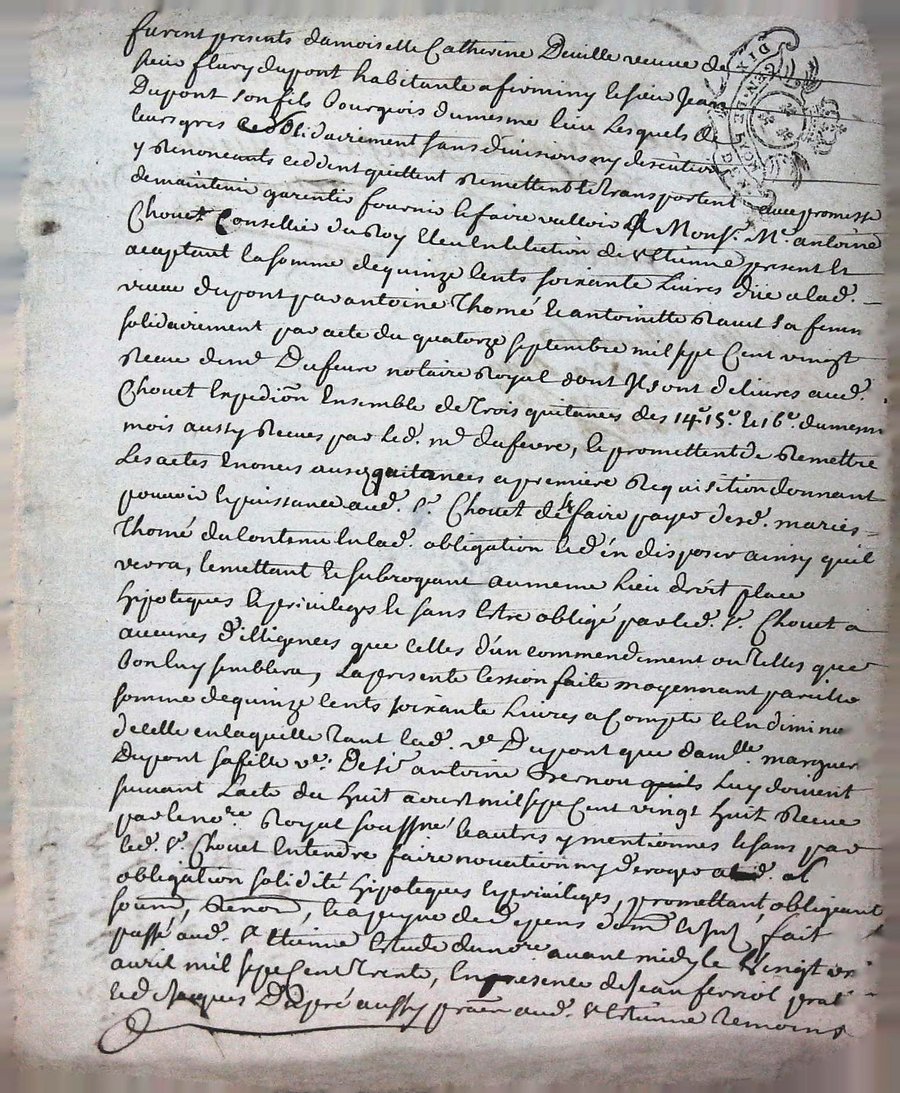 furent presents damoiselle Catherine Deville veuve de
sieur fleury dupont habitante a firminy le sieur Jean
Dupont son fils bourgeois du mesme lieu Lesquels de
leurs gres et solidairement sans division ny discution
y Renonceants cedent quittent Remettent et transportent avec promesse
de maintenir garentir fournir et faire valloir A Monsr. Me. antoine
Chouet Conseiller du Roy Eleu en Election de st Etienne present et
aceptant la somme de quinze Cents soixante Livres düe a lad.
veuve dupont par antoine Thomé et antoinette sa femme
solidairement par acte du quatorze septembre mil sept Cent vingt
Receu de me Dufeure notaire Royal dont Ils ont delivré aud.
Chouet Expedion Ensemble de trois quitances des 14e 15e et 16e du mesme
mois aussy Receues par led. me dufevre, et promettent de Remettre
Les actes Enoncés auxd quitances a premiere Requisition donnant
pouvoir et puissance aud. sr. Chouet de se faire payer desd. mariés
Thomé du Contenu en lad. obligation et d'en disposer ainsy qu'il
verra, le mettant et subrogeant au meme Lieu droit place
hipoteques et privileges et sans Estre obligé par led. sr. Chouet a
aucunes d'illigences que celles d'un commendement ou telles que
bon luy semblera, La presente Cession faite moyennant pareille
somme de quinze Cents soixante Livres a Compte et En diminu
de celle en laquelle tant lad. ve Dupont que damlle. marguer
Dupont sa fille ve. De sr antoine luy doivent
suivant L'acte du huit aoust mil sept Cent vingt huit Receu
par le nore Royal soussne et autres y mentionnés et sans par
led. sr. Chouet Entendre faire novation ny deroger a lad.
obligation solidité hipoteques et privileges, promettant, obligeant
soumt, Renont, et a peyne de depens dom fait
passé aud. st Etienne Etude du nore avant midy le vingt
avril mil sept Cent trente, En presence de Jean ferriol prat
et de Jacques Dupré aussy praen aud. st Etienne temoins
GEN DE LION